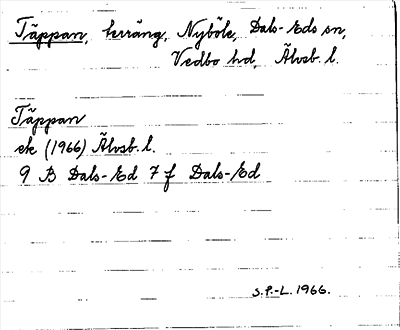 Täppan, terräng, Nyböle, Dals-Eds sn,
Vedbo hd, Älvsb. l.
Täppan
ek (1966) Älvsb. l.
9 B Dals-Ed 7 f Dals-Ed
S.P.-L. 1966.